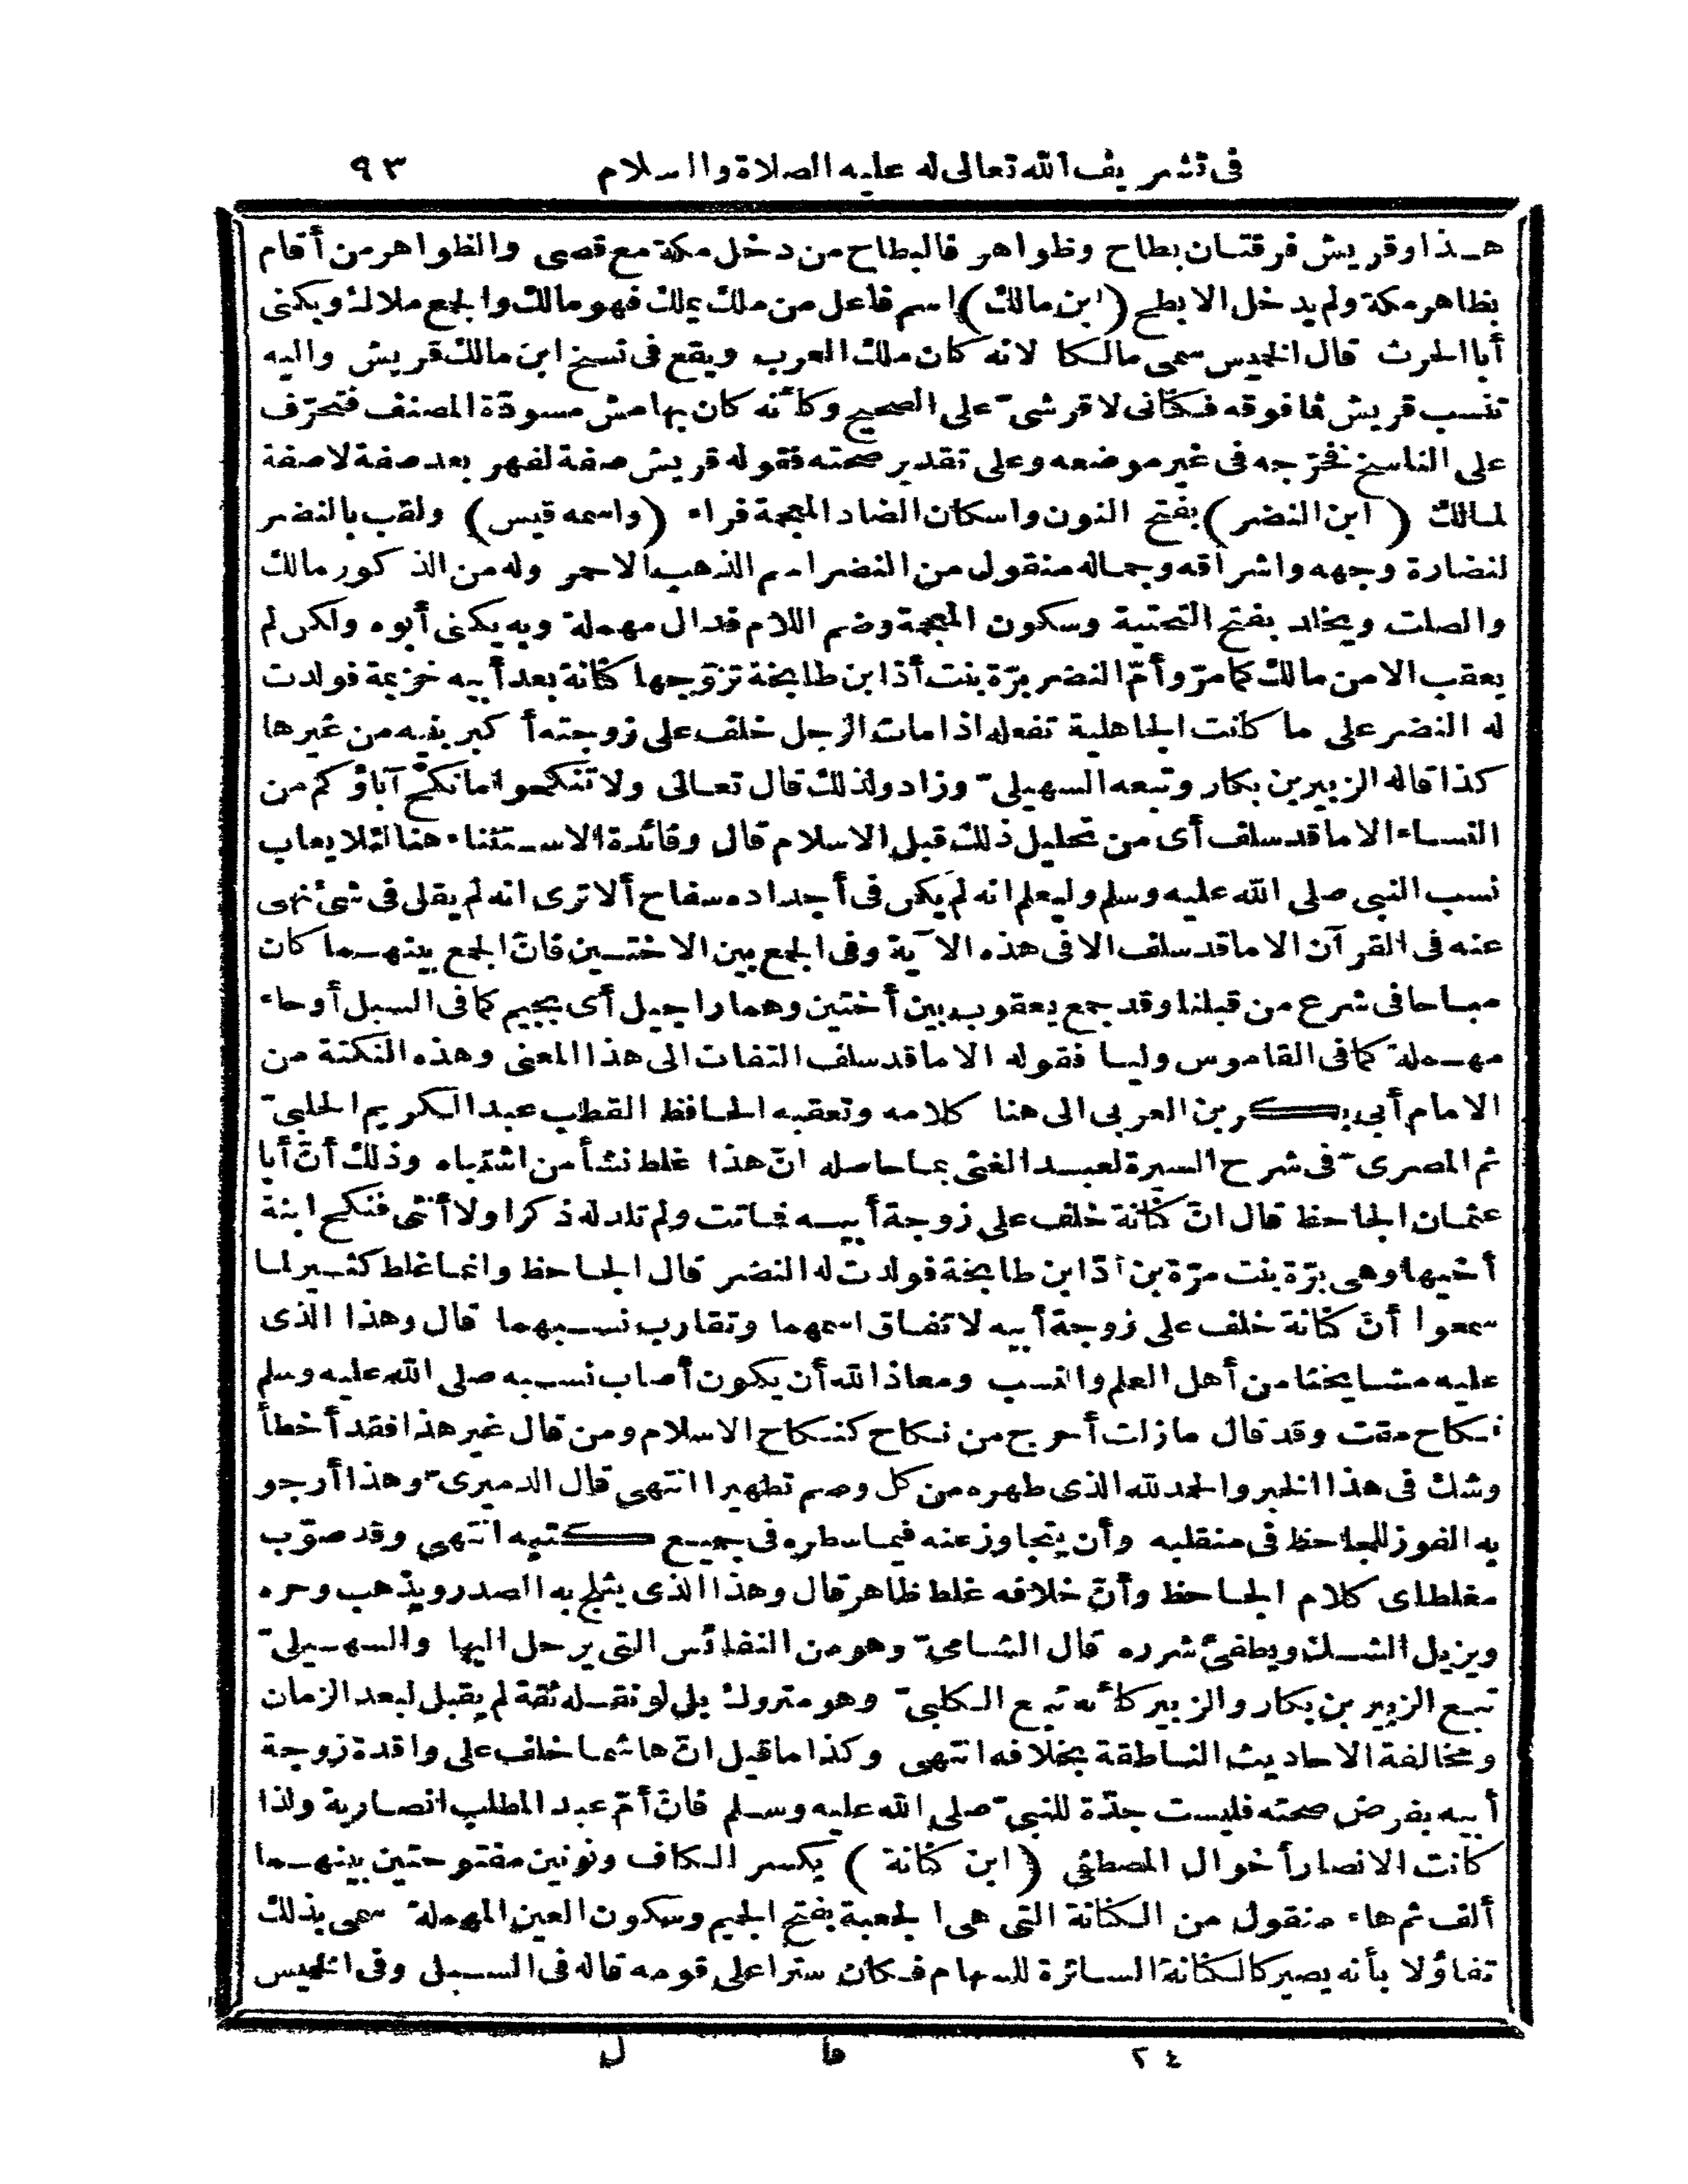 فى تشريف الله تعالى له عليه الصلاة والسلام ٩٣
هذا وقريش فرقتان بطاح وظواهر فالبطاح من دخل مكة مع قصى والظواهر من أقام
بظاهر مكة ولم يدخل الابطح (ابن مالك) اسم فاعل من ملك يملك فهو مالك والجمع ملاك ويكنى
أبا الحرث قال الخميس سمى مالكا لانه كان ملك العرب ويقع فى نسخ ابن مالك قريش واليه
تنسب قريش فما فوقه فكنانى لا قرشىّ على الصحيح وكأنه كان بهامش مسودّة المصنف فتحرّف
على الناسخ فخرّجه فى غير موضعه وعلى تقدير صحته فقوله قريش صفة لفهر بعد صفة لا صفة
لمالك (ابن النضر) بفتح النون واسكان الضاد المعجمة فراء (واسمه قيس) ولقب بالنضر
لنضارة وجهه واشراقه وجماله منقول من النضر اسم الذهب الاحمر وله من الذكور مالك
والصلت ويخلد بفتح التحتية وسكون المعجمة وضم اللام فدال مهملة وبه يكنى أبوه ولكن لم
يعقب الا من مالك كما مرّ وأمّ النضر برّة بنت أذ ابن طابخة تزوّجها كنانة بعد أبيه خزيمة فولدت
له النضر على ما كانت الجاهلية تفعله اذا مات الرجل خلف على زوجته أكبر بنيه من غيرها
كذا قاله الزبير بن بكار وتبعه السهيلىّ وزاد ولذلك قال تعالى ولا تنكحوا ما نكح آباؤكم من
النساء الا ما قد سلف أى من تحليل ذلك قبل الاسلام قال وفائدة الاستثناء هنا لئلا يعاب
نسب النبى صلى الله عليه وسلم وليعلم انه لم يكن فى أجداده سفاح ألا ترى انه لم يقل فى شئ نهى
عنه فى القرآن الا ما قد سلف الا فى هذه الآية وفى الجمع بين الاختين فانّ الجمع بينهما كان
مباحا فى شرع من قبلنا وقد جمع يعقوب بين أختين وهما راجيل أى بجيم كما فى السبل أو حاء
مهملة كما فى القاموس وليا فقوله الا ما قد سلف التفات الى هذا المعنى وهذه النكتة من
الامام أبى بكر بن العربى الى هنا كلامه وتعقبه الحافظ القطب عبد الكريم الحلبىّ
ثم المصرىّ فى شرح السيرة لعبد الغنى بما حاصله انّ هذا غلط نشأ من اشتباه وذلك أنّ أبا
عثمان الجاحظ قال انّ كنانة خلف على زوجة أبيه فماتت ولم تلد له ذكرا ولا أنثى فنكح ابنة
أخيها وهى برّة بنت مرّة بن أدّ ابن طابخة فولدت له النضر قال الجاحظ وانما غلط كثير لما
سمعوا أنّ كنانة خلف على زوجة أبيه لاتفاق اسمهما وتقارب نسبهما قال وهذا الذى
عليه مشايخنا من أهل العلم والنسب ومعاذ الله أن يكون أصاب نسبه صلى الله عليه وسلم
نكاح مقت وقد قال ما زلت أخرج من نكاح كنكاح الاسلام ومن قال غير هذا فقد أخطأ
وشك فى هذا الخبر والحمد لله الذى طهره من كل وصم تطهيرا انتهى قال الدميرىّ وهذا أرجو
به الفوز للجاحظ فى منقلبه وأن يتجاوز عنه فيما سطره فى جميع كتبه انتهى وقد صوّب
مغلطاى كلام الجاحظ وأنّ خلافه غلط ظاهر قال وهذا الذى يثلج به الصدر ويذهب وحره
ويزيل الشك ويطفئ شرره قال الشامىّ وهو من النفائس التى يرحل اليها والسهيلىّ
تبع الزبير بن بكار والزبير كأنه تبع الكلبىّ وهو متروك بل لو نقله ثقة لم يقبل لبعد الزمان
ومخالفة الاحاديث الناطقة بخلافه انتهى وكذا ما قيل انّ هاشما خلف على واقدة زوجة
أبيه بفرض صحته فليست جدّة للنبىّ صلى الله عليه وسلم فانّ أمّ عبد المطلب انصارية ولذا
كانت الانصار أخوال المصطفى (ابن كنانة) بكسر الكاف ونونين مفتوحتين بينهما
ألف ثم هاء منقول من الكنانة التى هى الجعبة بفتح الجيم وسكون العين المهملة سمى بذلك
تفاؤلا بأنه يصير كالكنانة الساترة للسهام فكان سترا على قومه قاله فى السبل وفى الخميس
٢٤ قا ل